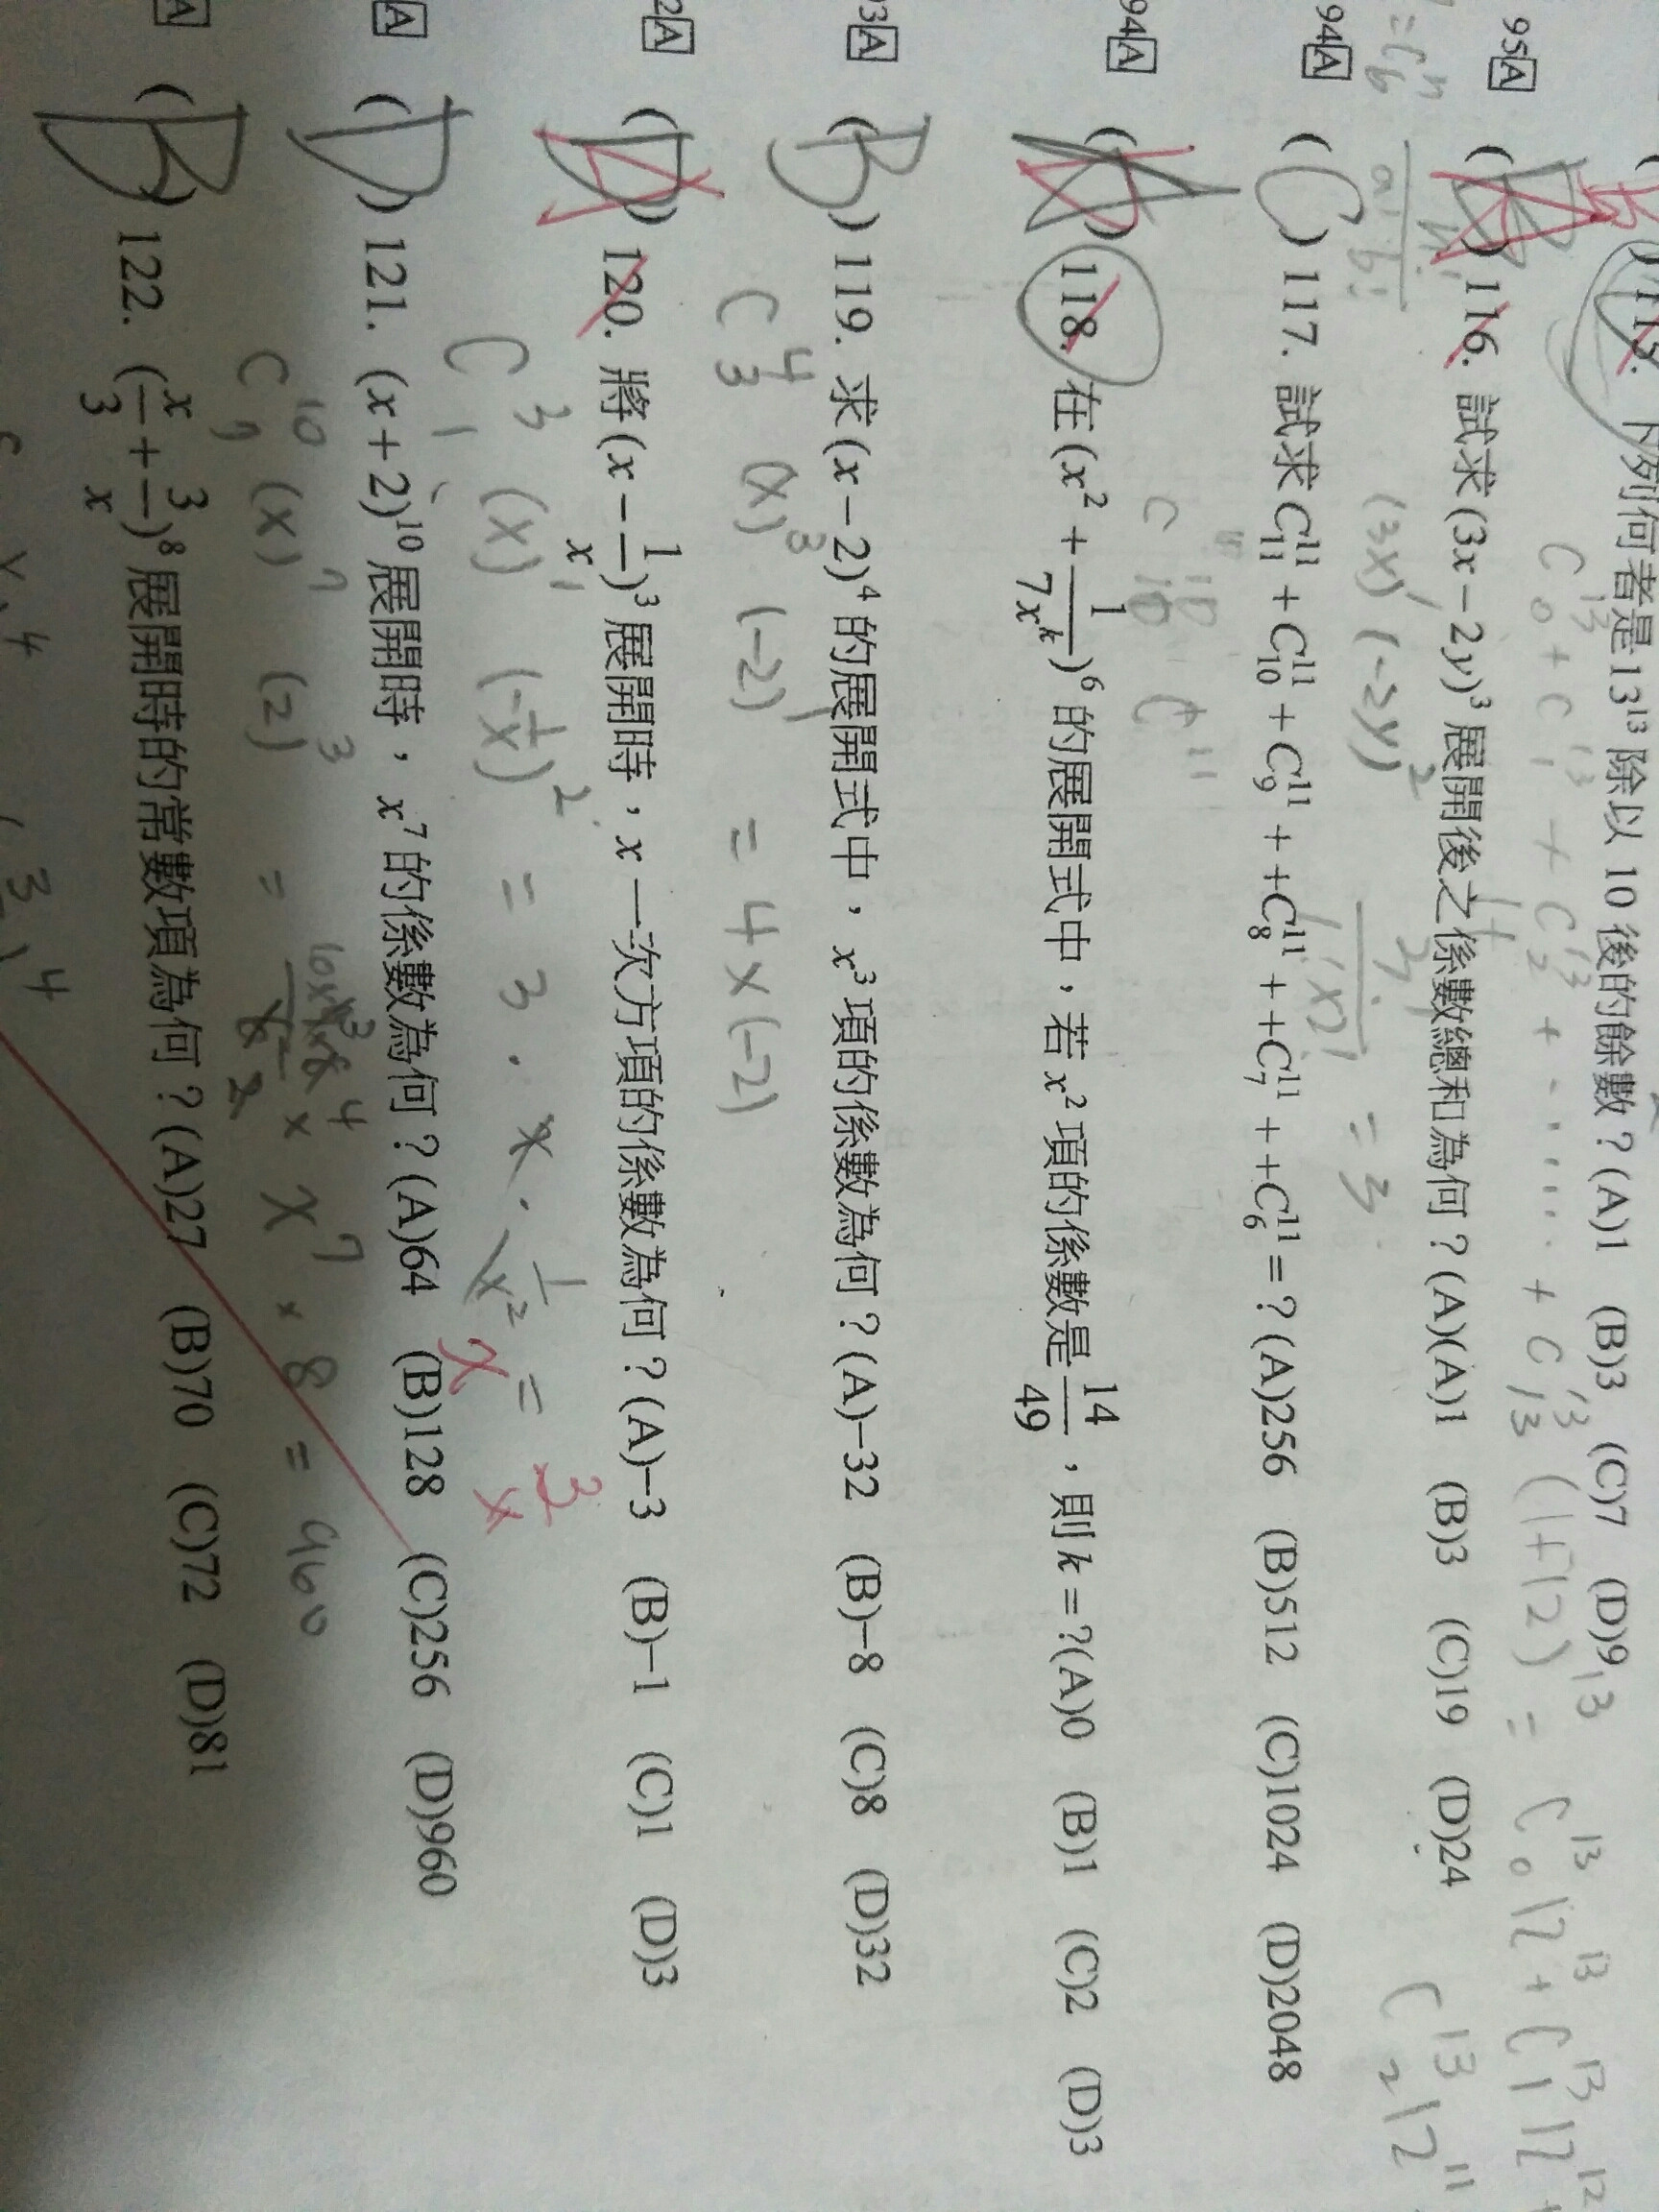 115. 下列何者是 13¹³ 除以 10 後的餘數？(A)1 (B)3 (C)7 (D)9
C₀¹³ + C₁¹³ + C₂¹³ + ⋯⋯ + C₁₃¹³ (1+12)¹³ = C₀¹³ 12¹³ + C₁¹³ 12¹² +
95 A ( ) 116. 試求 (3x − 2y)³ 展開後之係數總和為何？(A)(A)1 (B)3 (C)19 (D)24
(3x)¹ (−2y)² = 3 C₂¹³ 12¹¹
94 A (C) 117. 試求 C₁₁¹¹ + C₁₀¹¹ + C₉¹¹ + +C₈¹¹ + +C₇¹¹ + +C₆¹¹ = ? (A)256 (B)512 (C)1024 (D)2048
94 A (A) 118. 在 (x² + 1/(7xᵏ))⁶ 的展開式中，若 x² 項的係數是 14/49，則 k = ?(A)0 (B)1 (C)2 (D)3
93 A (B) 119. 求 (x − 2)⁴ 的展開式中，x³ 項的係數為何？(A)−32 (B)−8 (C)8 (D)32
C₃⁴ (x)³ (−2)¹ = 4 × (−2)
2 A (D) 120. 將 (x − 1/x)³ 展開時，x 一次方項的係數為何？(A)−3 (B)−1 (C)1 (D)3
C₁³ (x)¹ (−1/x)² = 3 · x · 1/x² = 3/x
A (D) 121. (x + 2)¹⁰ 展開時，x⁷ 的係數為何？(A)64 (B)128 (C)256 (D)960
C₇¹⁰ (x)⁷ (2)³ = × x⁷ × 8 = 960
A (B) 122. (x/3 + 3/x)⁸ 展開時的常數項為何？(A)27 (B)70 (C)72 (D)81